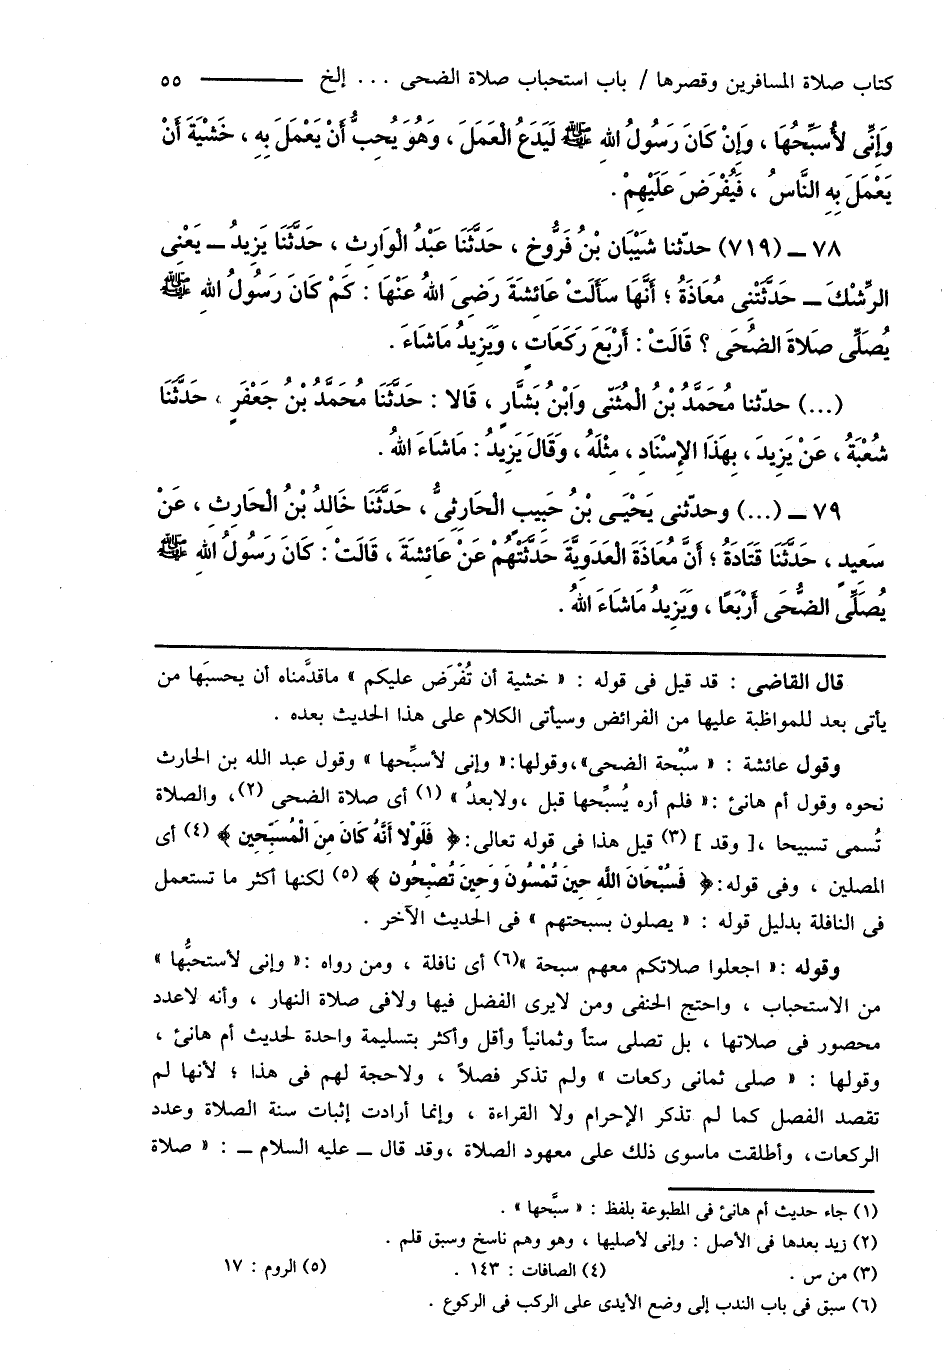 كتاب صلاة المسافرين وقصرها / باب استحباب صلاة الضحى ... إلخ ــــــــ ٥٥
وَإِنِّى لأُسَبِّحُهَا ، وَإِنْ كَانَ رَسُولُ اللهِ ﷺ لَيَدَعُ الْعَمَلَ ، وَهُوَ يُحِبُّ أَنْ يَعْمَلَ بِهِ ، خَشْيَةَ أَنْ
يَعْمَلَ بِهِ النَّاسُ ، فَيُفْرَضَ عَلَيْهِمْ .
٧٨ ــ (٧١٩) حدّثنا شَيْبَان بْنُ فَرُّوخ ، حَدَّثَنَا عَبْدُ الْوَارِثِ ، حَدَّثَنَا يَزِيدُ ــ يَعْنِى
الرِّشْكَ ــ حَدَّثَتْنِى مُعَاذَةُ ؛ أَنَّهَا سَأَلَتْ عَائِشَةَ رَضِىَ اللهُ عَنْهَا : كَمْ كَانَ رَسُولُ اللهِ ﷺ
يُصَلِّى صَلاَةَ الضُّحَى ؟ قَالَتْ : أَرْبَعَ رَكَعَاتٍ ، وَيَزِيدُ مَاشَاءَ .
(...) حدّثنا مُحَمَّدُ بْنُ الْمُثَنّى وَابْنُ بَشَّارٍ ، قَالا : حَدَّثَنَا مُحَمَّدُ بْنُ جَعْفَرٍ ، حَدَّثَنَا
شُعْبَةُ ، عَنْ يَزِيدَ ، بِهَذَا الإِسْنَادِ ، مِثْلَهُ ، وَقَالَ يَزِيدُ : مَاشَاءَ اللهُ .
٧٩ ــ (...) وحدّثنى يَحْيَى بْنُ حَبِيبٍ الْحَارِثِىُّ ، حَدَّثَنَا خَالِدُ بْنُ الْحَارِثِ ، عَنْ
سَعِيدٍ ، حَدَّثَنَا قَتَادَةُ ؛ أَنَّ مُعَاذَةَ الْعَدَوِيَّةَ حَدَّثَتْهُمْ عَنْ عَائِشَةَ ، قَالَتْ : كَانَ رَسُولُ اللهِ ﷺ
يُصَلِّى الضُّحَى أَرْبَعًا ، وَيَزِيدُ مَاشَاءَ اللهُ .
قال القاضى : قد قيل فى قوله : « خشية أن تُفْرَض عليكم » ماقدَّمناه أن يحسبَها من
يأتى بعد للمواظبة عليها من الفرائض وسيأتى الكلام على هذا الحديث بعده .
وقول عائشة : « سُبْحة الضحى»،وقولها:« وإنى لأسبِّحها » وقول عبد الله بن الحارث
نحوه وقول أم هانئ :« فلم أره يُسبِّحها قبل ،ولابعدُ » (١) أى صلاة الضحى (٢)، والصلاة
تُسمى تسبيحا ،[ وقد ] (٣) قيل هذا فى قوله تعالى:﴿ فَلَوْلا أَنَّهُ كَانَ مِنَ الْمُسَبِّحِين ﴾ (٤) أى
المصلين ، وفى قوله:﴿ فَسُبْحَانَ اللَّهِ حِينَ تُمْسُونَ وَحِينَ تُصْبِحُون ﴾ (٥) لكنها أكثر ما تستعمل
فى النافلة بدليل قوله : « يصلون بسبحتهم » فى الحديث الآخر .
وقوله :« اجعلوا صلاتكم معهم سبحة »(٦) أى نافلة ، ومن رواه :« وإنى لأستحبُّها »
من الاستحباب ، واحتج الحنفى ومن لايرى الفضل فيها ولافى صلاة النهار ، وأنه لاعدد
محصور فى صلاتها ، بل تصلى ستاً وثمانياً وأقل وأكثر بتسليمة واحدة لحديث أم هانئ ،
وقولها : « صلى ثمانى ركعات » ولم تذكر فصلاً ، ولاحجة لهم فى هذا ؛ لأنها لم
تقصد الفصل كما لم تذكر الإحرام ولا القراءة ، وإنما أرادت إثبات سنة الصلاة وعدد
الركعات، وأطلقت ماسوى ذلك على معهود الصلاة ،وقد قال ــ عليه السلام ــ : « صلاة
(١) جاء حديث أم هانئ فى المطبوعة بلفظ : « سبَّحها » .
(٢) زيد بعدها فى الأصل : وإنى لأصليها ، وهو وهم ناسخ وسبق قلم .
(٣) من س . (٤) الصافات : ١٤٣ . (٥) الروم : ١٧
(٦) سبق فى باب الندب إلى وضع الأيدى على الركب فى الركوع .